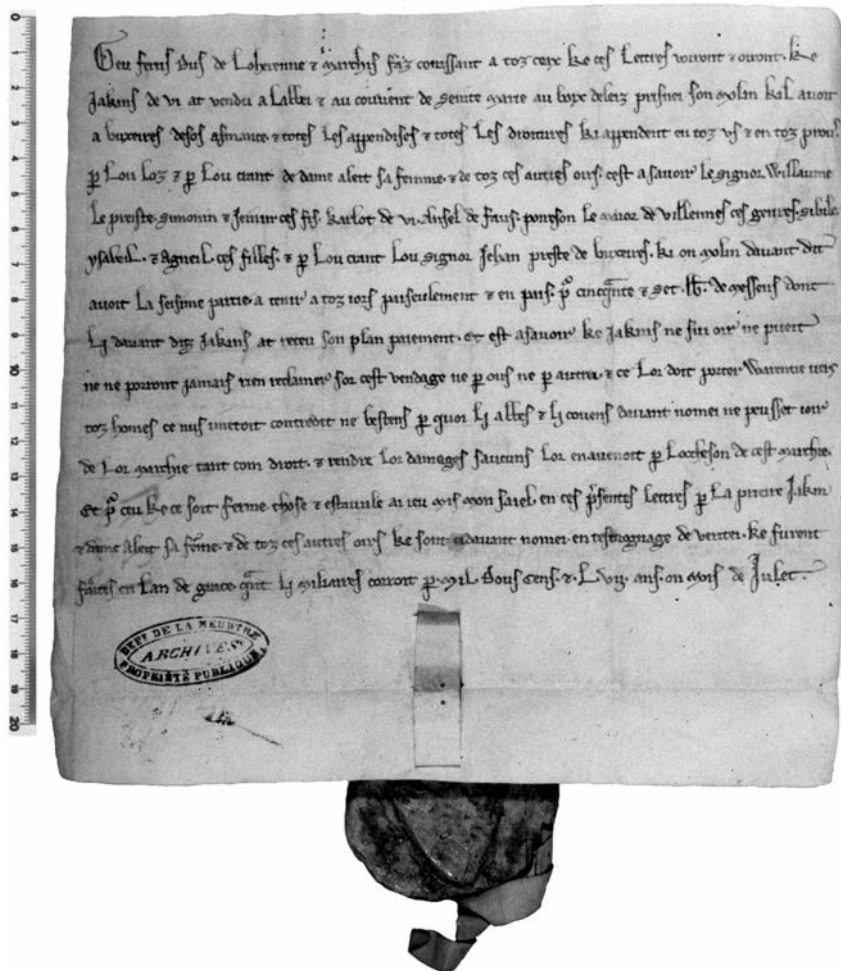 Geu ferris dus de Loherenne ⁊ marchis faz conissant a toz ceox ke ces Lettres vairont ⁊ oiront. ke
Jakins de vi at vendu a labbei ⁊ au couvient de seinte marie au boix deleiz prisnei son molin kil avoit
a buxieires desos asmance. ⁊ totes les appendises ⁊ totes les droitures ki appendent en toz us ⁊ en toz prous.
p Lou Loz ⁊ p Lou crant de dame aleit sa femme. ⁊ de toz ces autres oirs. cest a savoir le signor Willaume
Le preiste. simonin ⁊ ces fis. karlot de vi. de faus. le maior de villennes ces genres. sibile
ysabeil. ⁊ Agneil. ces filles. ⁊ p Lou crant Lou signor Jehan preste de buxieires. ki on molin davant dit
avoit La seisime partie. a tenir a toz iors paiseulement ⁊ en pais. p cincquante ⁊ set. lb. de messeins dont
Li davant diz Jakins at receu son plan paiement. Et est a savoir ke Jakins ne sui oir ne pueit
ne ne porront jamais rien reclamer sor cest vendage ne p ous ne p autrui. ⁊ ce Lor doit porter Warentie
toz homes ce nus i metoit contredit ne bestens p quoi li abbes ⁊ li covens davant nomei ne peusset ioir
de Lor marchie tant com droit. ⁊ rendre Lor damages saucuns Lor en avenoit p Locheson de cest marchie.
Et p ceu ke ce soit ferme chose ⁊ estaule ai ieu mis mon saiel en ces presentes Lettres p La priere Jakin
⁊ dame Aleit sa feme. ⁊ de toz ces autres oirs ke sont davant nomei. en tesmognage de veritei. ke furent
faites en Lan de grace. qant li miliaires corroit p. mil. Dous cens. ⁊. L. vij. ans. on mois de Julet.
DEPT DE LA MEURTHE
ARCHIVES
PROPRIÉTÉ PUBLIQUE
0
1
2
3
4
5
6
7
8
9
10
11
12
13
14
15
16
17
18
19
20